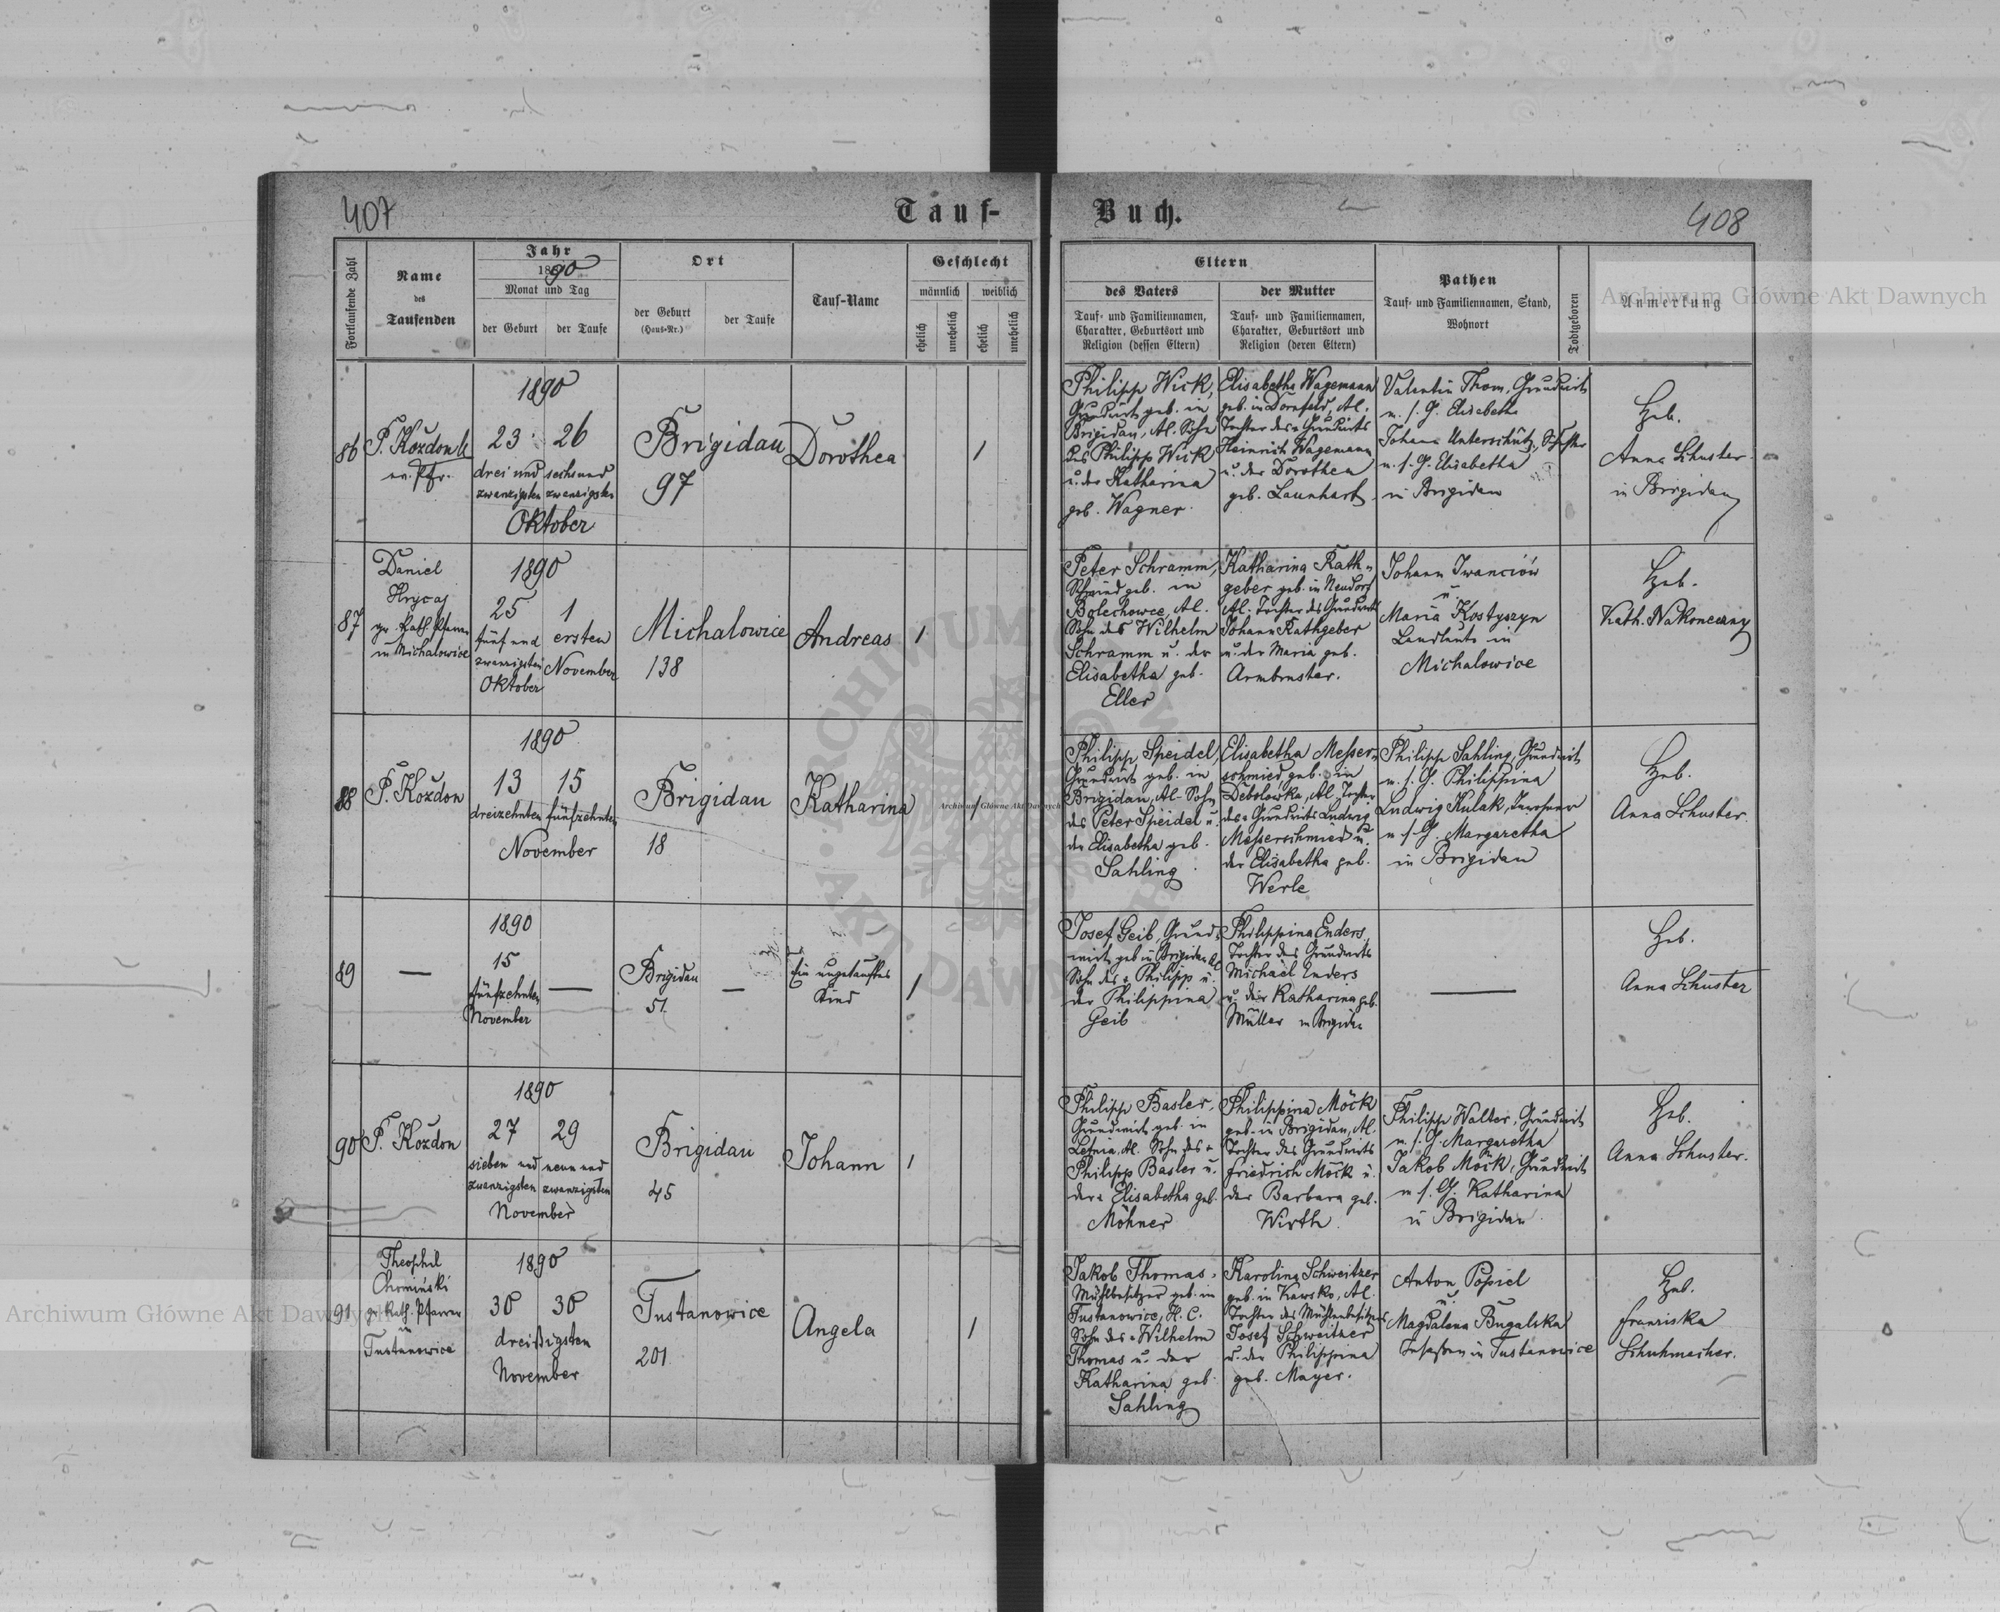 407
Tauf-
Buch.
408
Fortlaufende Zahl
Name
des
Taufenden
Jahr
1890
Monat und Tag
der Geburt
der Taufe
Ort
der Geburt
(Haus-Nr.)
der Taufe
Tauf-Name
Geschlecht
männlich
weiblich
ehelich
unehelich
ehelich
unehelich
Eltern
des Vaters
Tauf- und Familiennamen,
Charakter, Geburtsort und
Religion (dessen Eltern)
der Mutter
Tauf- und Familiennamen,
Charakter, Geburtsort und
Religion (deren Eltern)
Pathen
Tauf- und Familiennamen, Stand,
Wohnort
Todtgeboren
Anmerkung
86
ev. Pfr.
1890
23
26
drei und
sechs und
zwanzigsten
zwanzigsten
Oktober
Brigidau
97
Dorothea
1
Philipp Wick,
Grundwirt geb. in
Brigidau, Al. Sohn
des Philipp Wick
u. der Katharina
geb. Wagner.
Elisabetha Wagemann
geb. in Dornfeld, Al.
Tochter des Grundwirts
Heinrich Wagemann
u. der Dorothea
geb. Launhart
Valentin Thom, Grundwirt
u. s. G. Elisabetha
Johann Unterschütz,
u. s. G. Elisabetha
in Brigidau
Heb.
Anna Schuster
in Brigidau
87
Daniel
Hrycaj
gr. Kath. Pfarrer
in Michalowice
1890
25
1
fünf und
ersten
zwanzigsten
November
Oktober
Michalowice
138
Andreas
1
Peter Schramm,
Schmied geb. in
Bolechowce, Al.
Sohn des Wilhelm
Schramm u. der
Elisabetha geb.
Eller
Katharina Rath-
geber geb. in Neudorf
Al. Tochter des Grundwirts
Johann Rathgeber
u. der Maria geb.
Armbruster.
Johann Iwanciów
u.
Maria Kostyszyn
Landleute in
Michalowice
Heb.
Kath. Nakoneczny
88
P. Kozdon
1890
13
15
dreizehnten
fünfzehnten
November
Brigidau
18
Katharina
1
Philipp Speidel,
Grundwirt geb. in
Brigidau, Al. Sohn
des Peter Speidel u.
der Elisabetha geb.
Sahling
Elisabetha Messer-
schmied geb. in
Debolowka, Al. Tochter
des Grundwirts Ludwig
Messerschmied u.
der Elisabetha geb.
Werle
Philipp Sahling, Grundwirt
u. s. G. Philippina
Ludwig Kulak, Inwohner
u. s. G. Margaretha
in Brigidau
Heb.
Anna Schuster.
89
1890
15
fünfzehnten
November
Brigidau
51.
Ein ungetauftes
Kind
1
Josef Geib, Grund-
wirt geb. in Brigidau Al.
Sohn des Philipp u.
der Philippina
Geib
Philippina Enders,
Tochter des Grundwirts
Michael Enders
u. der Katharina geb.
Müller in Brigidau
Heb.
Anna Schuster
90
P. Kozdon
1890
27
29
sieben und
neun und
zwanzigsten
zwanzigsten
November
Brigidau
45
Johann
1
Philipp Basler,
Grundwirt geb. in
Letnia, Al. Sohn des +
Philipp Basler u.
der + Elisabetha geb.
Möhner
Philippina Möck
geb. in Brigidau, Al.
Tochter des Grundwirts
Friedrich Möck u.
der Barbara geb.
Wirth.
Philipp Walter, Grundwirt
u. s. G. Margaretha
Jakob Möck, Grundwirt
u. s. G. Katharina
in Brigidau.
Heb.
Anna Schuster.
91
Theophil
Chomiński
gr. Kath. Pfarrer
in
Tustanowice
1890
30
30
dreißigsten
November
Tustanowice
201
Angela
1
Jakob Thomas,
Mühlbesitzer geb. in
Tustanowice, H. C.
Sohn des + Wilhelm
Thomas u. der
Katharina geb.
Sahling
Karolina Schweitzer
geb. in Kawsko, Al.
Tochter des Mühlenbesitzers
Josef Schweitzer
u. der Philippina
geb. Mayer.
Anton Popiel
u.
Magdalena Bugalska
Insassen in Tustanowice
Heb.
Franziska
Schuhmacher.
Archiwum Główne Akt Dawnych
Archiwum Główne Akt Dawnych
Archiwum Główne Akt Dawnych